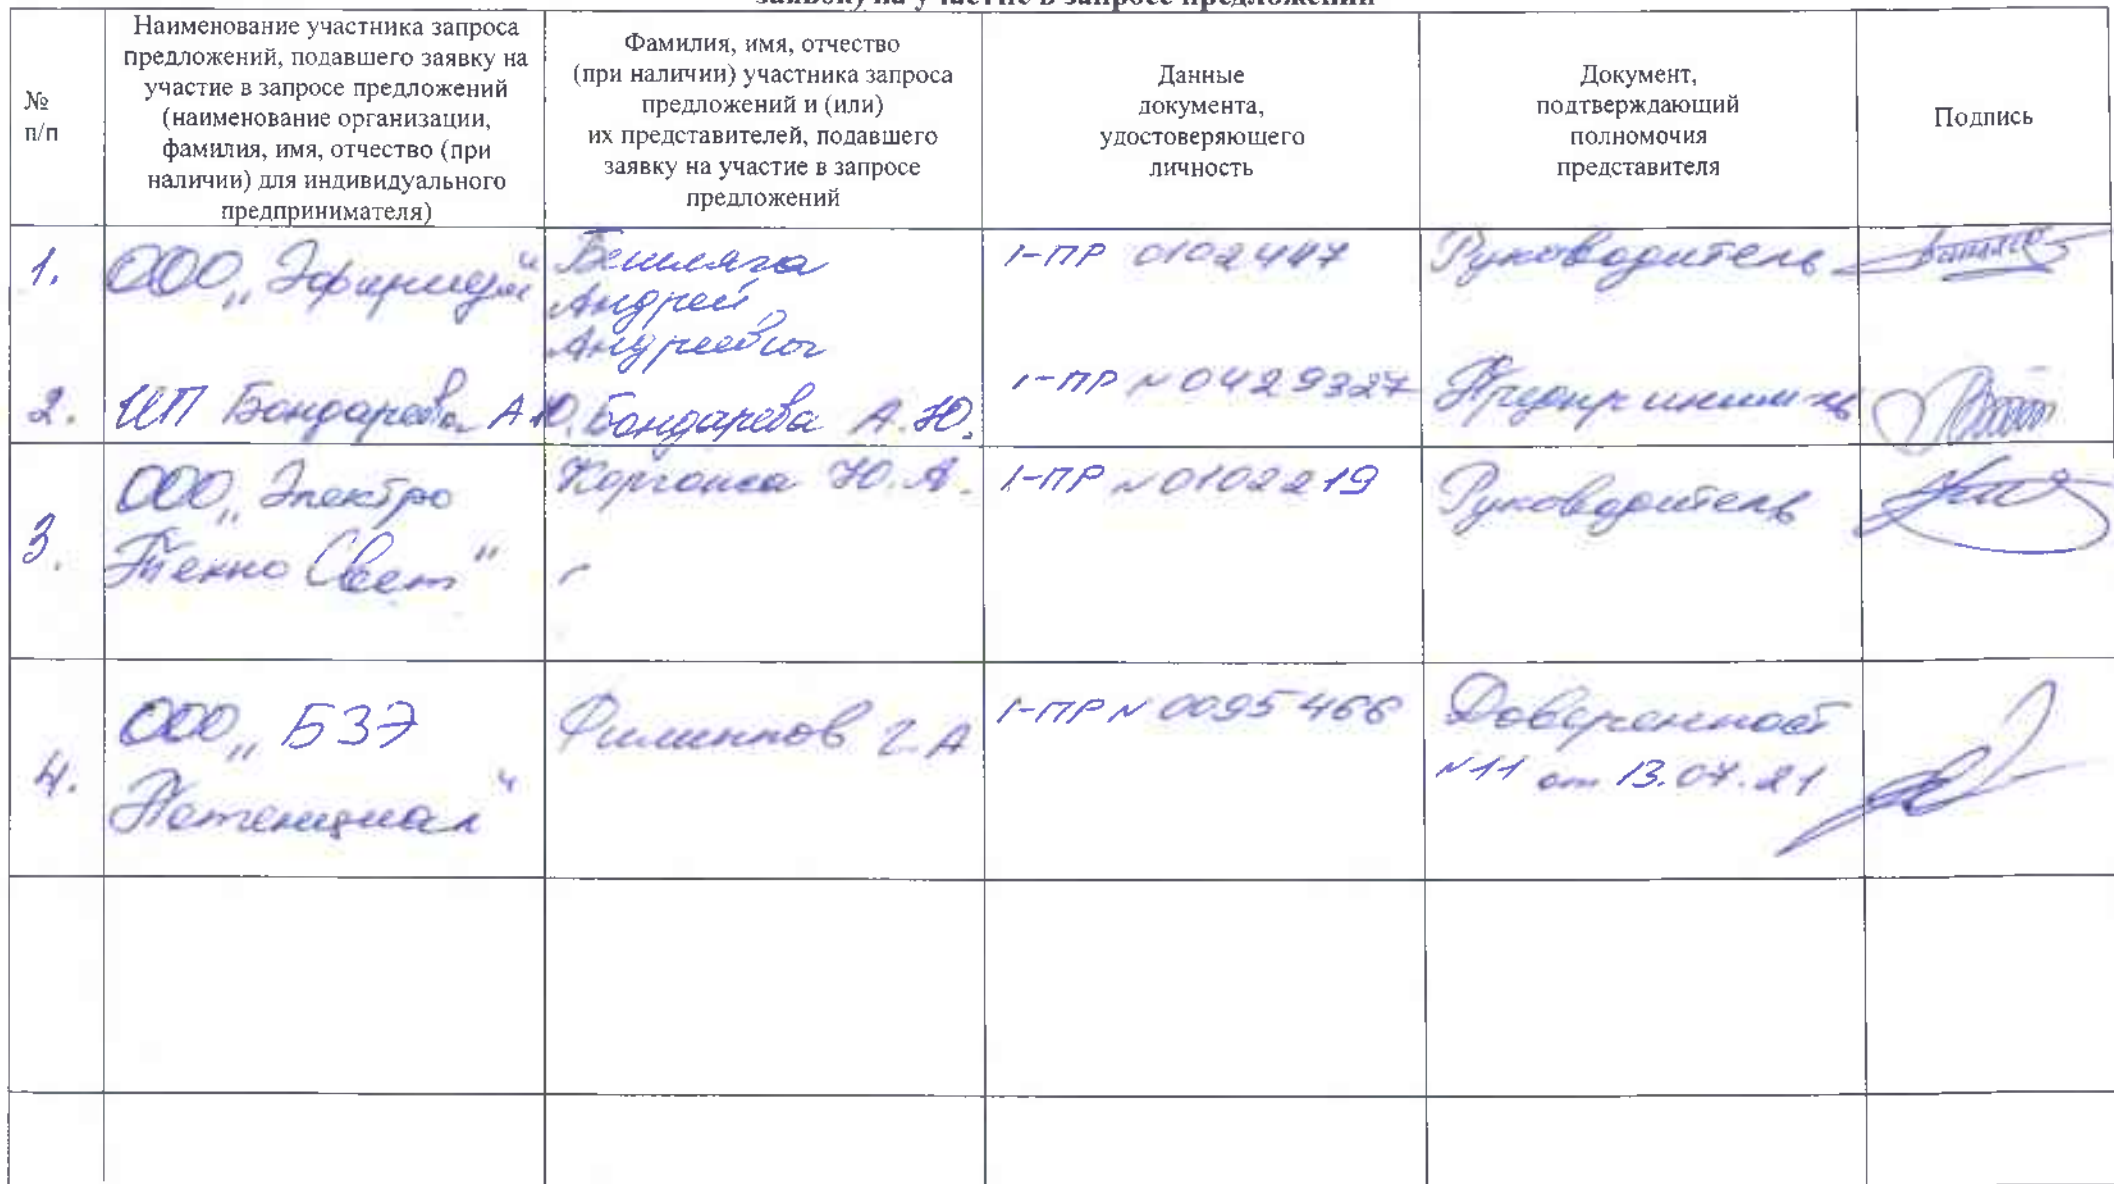 заявку на участие в запросе предложений
№
п/п
Наименование участника запроса
предложений, подавшего заявку на
участие в запросе предложений
(наименование организации,
фамилия, имя, отчество (при
наличии) для индивидуального
предпринимателя)
Фамилия, имя, отчество
(при наличии) участника запроса
предложений и (или)
их представителей, подавшего
заявку на участие в запросе
предложений
Данные
документа,
удостоверяющего
личность
Документ,
подтверждающий
полномочия
представителя
Подпись
1.
ООО „Эфириум"
Бешляга
Андрей
Андреевич
I-ПР 0102447
Руководитель
2.
ИП Бондарева А.Ю.
Бондарева А.Ю.
I-ПР №0429327
3.
ООО „Электро
Техно Свет"
Ю.А.
I-ПР №0102219
Руководитель
4.
ООО „БЗЭ
Потенциал"
Филиппов Г.А
I-ПР № 0095466
Доверенност
№11 от 13.07.21